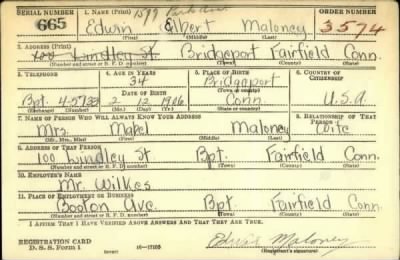 SERIAL NUMBER
1. NAME (Print)
ORDER NUMBER
1579 Park Ave
665
Edwin Elbert Maloney
3574
(First) (Middle) (Last)
2. ADDRESS (Print)
100 Lindley St. Bridgeport Fairfield Conn.
(Number and street or R. F. D. number) (Town) (County) (State)
3. TELEPHONE
4. AGE IN YEARS
5. PLACE OF BIRTH
6. COUNTRY OF CITIZENSHIP
34
Bridgeport
DATE OF BIRTH
(Town or county)
Bpt. 4-5733 2 12 1906 Conn. U.S.A.
(Exchange) (Number) (Mo.) (Day) (Yr.) (State or country)
7. NAME OF PERSON WHO WILL ALWAYS KNOW YOUR ADDRESS
8. RELATIONSHIP OF THAT PERSON
Mrs. Mabel Maloney Wife
(Mr., Mrs., Miss) (First) (Middle) (Last)
9. ADDRESS OF THAT PERSON
100 Lindley St Bpt. Fairfield Conn.
(Number and street or R. F. D. number) (Town) (County) (State)
10. EMPLOYER'S NAME
Mr. Wilkes
11. PLACE OF EMPLOYMENT OR BUSINESS
Boston Ave. Bpt. Fairfield Conn.
(Number and street or R. F. D. number) (Town) (County) (State)
I AFFIRM THAT I HAVE VERIFIED ABOVE ANSWERS AND THAT THEY ARE TRUE.
REGISTRATION CARD
D. S. S. Form 1
16-17105
Edwin Maloney
(Registrant's signature)